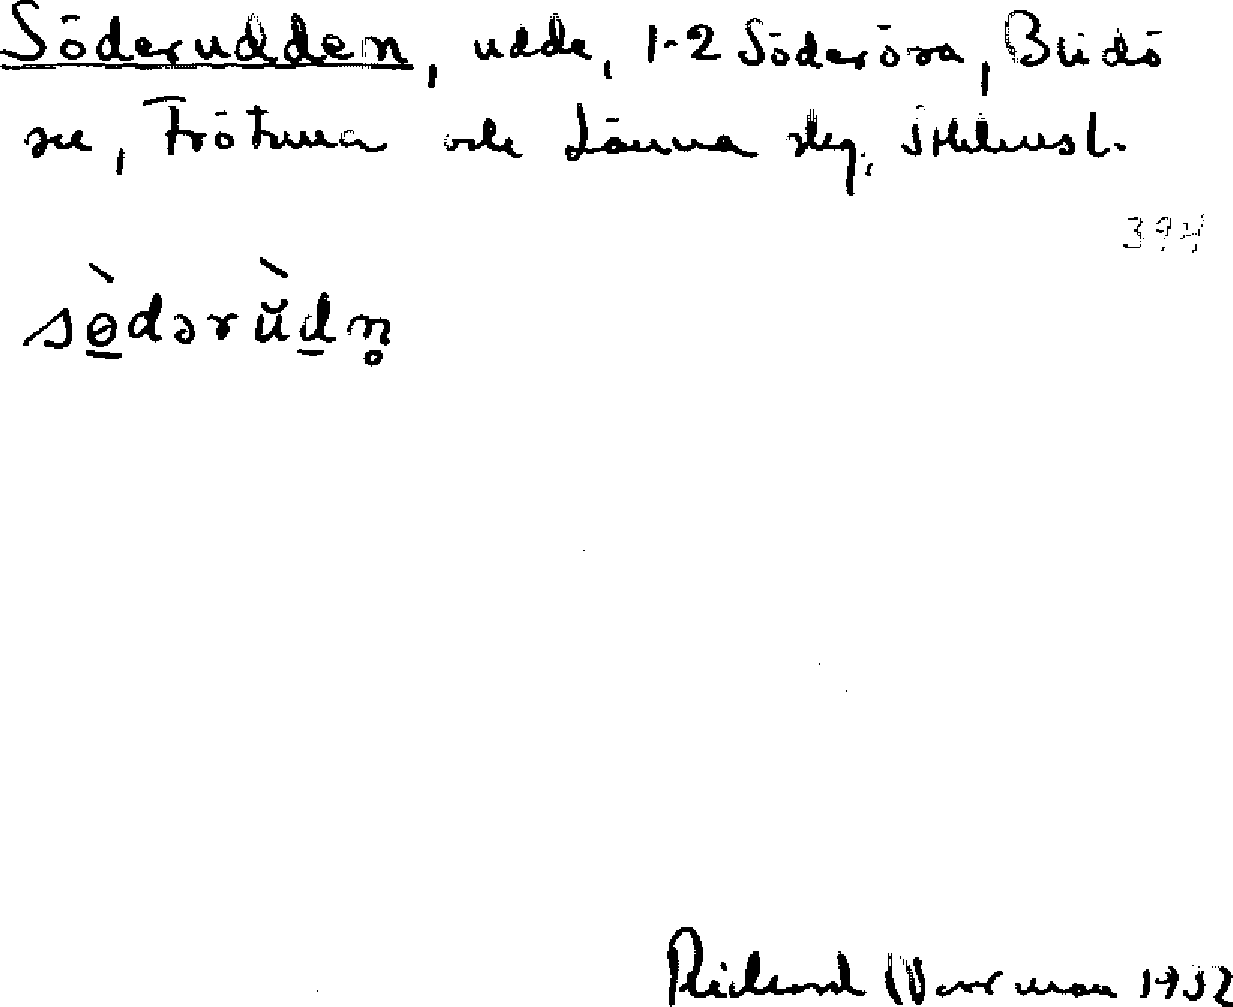 Söderudden, udde, 1-2 Söderöra, Blidö
sn, Frötuna och Länna skg, Sthlmsl.
394
sɵ̀dərŭ̀dn̥
Rickard Norrman 1932